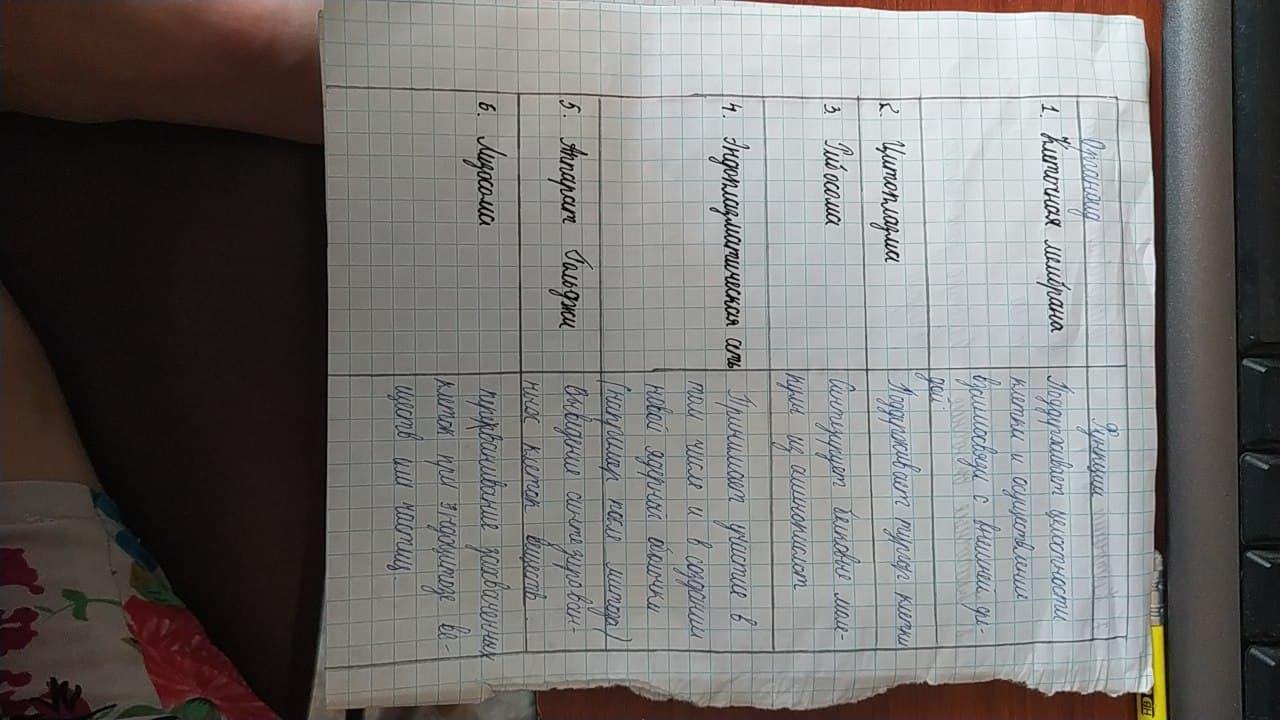 Органоид
Функции
1. Клеточная мембрана
Поддерживает целостность
клетки и осуществление
взаимосвязи с внешней
2. Цитоплазма
Поддерживает тургор клетки
3. Рибосома
Синтезирует белковые
из аминокислот
4. Эндоплазматическая сеть
Принимает участие в
том числе и в создании
новой ядерной оболочки
(например после митоза)
5. Аппарат Гольджи
Выведение синтезирован-
ных клеткой веществ
6. Лизосома
переваривание захваченных
клеток при эндоцитозе ве-
ществ или частиц.
HB